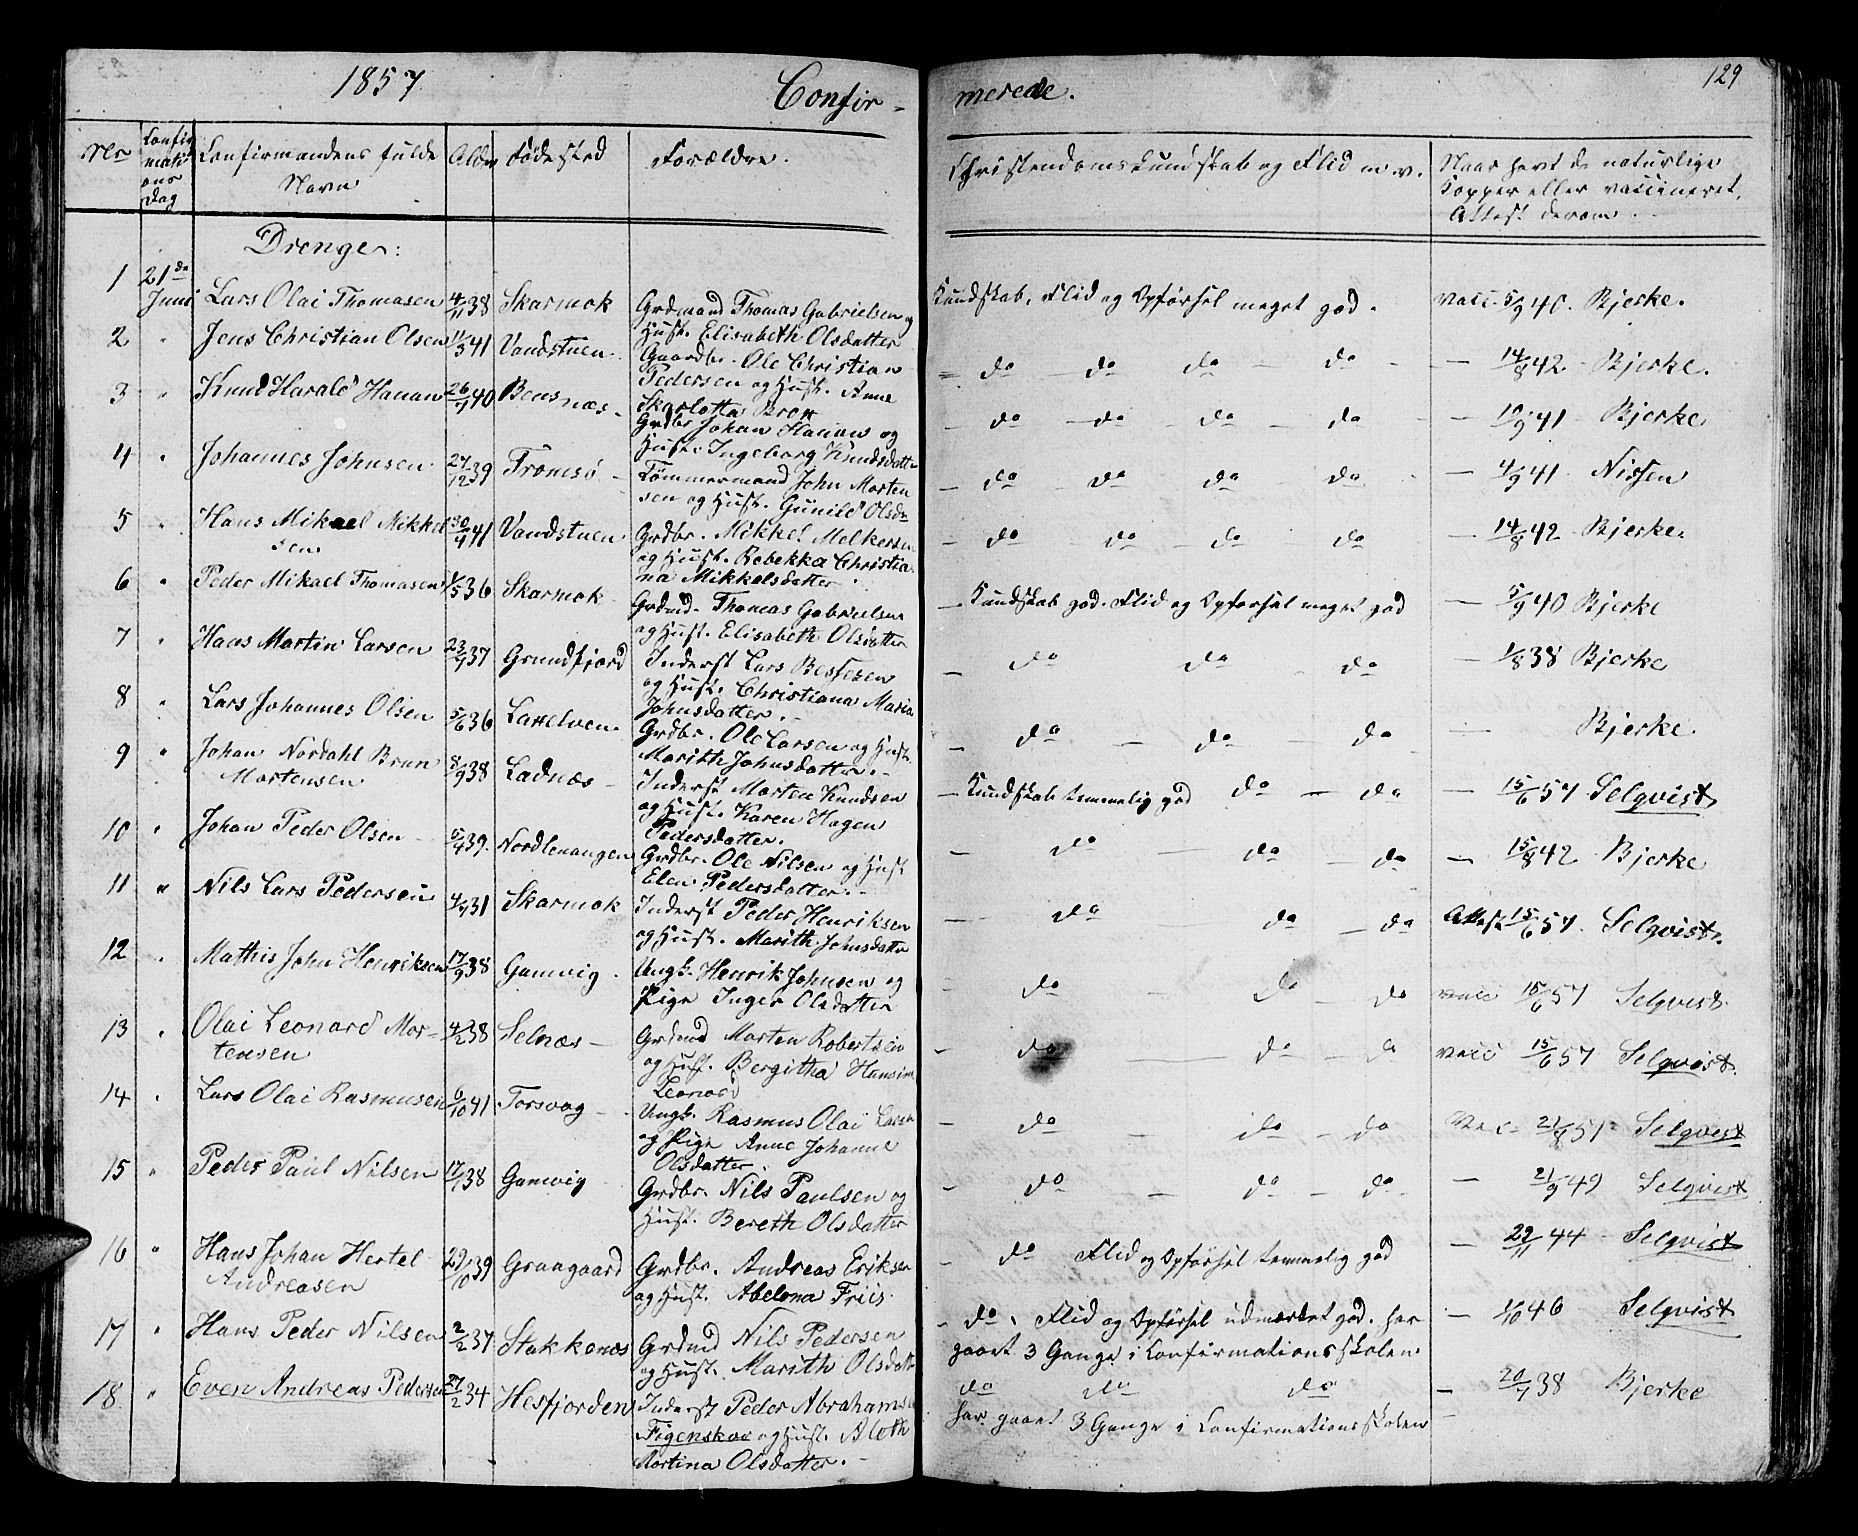 1857.
Confir-
merede.
129
Nr
Confir
mati
ons
Dag
Confirmandens fulde
Navn
Alder
Fødested
Forældre.
Christendomskundskab og Flid m. v.
Naar havt de naturlige
Kopper eller vaccineret.
Attest derom.
Drenger:
1 21de
Juni Lars Olai Thomasen 4/11 38 Skarmok Grdmand Thomas Gabrielsen og
Hust. Elisabeth Olsdatter
Kundskab, Flid og Opførsel meget god. vacc. 5/9 40. Bjerke.
2 " Jens Christian Olsen 11/3 41 Vandstuen Gaardbr. Ole Christian
Pedersen og Hust. Anne
Skarlotta
— do — do — do — do — 14/8 42 - Bjerke.
3 " Knud Harald Hanan 26/1 40 Bensnæs - Grdbr Johan Hanan og
Hust. Ingeborg Knudsdatter
— do — do — do — do — 19/9 41 - Bjerke
4 " Johannes Johnsen 27/12 39 Tromsø - Tømmermand John Morten
sen og Hust. Gunild Olsdr
— do — do — do — do — 4/9 41 - Nissen
5 " Hans Mikael Mikkel
sen 30/4 41 Vandstuen Grdbr. Mikkel Melkersen
og Hust. Rebekka Christia-
na Mikkelsdatter
— do do do do — 14/8 42 Bjerke.
6 " Peder Mikael Thomasen 1/5 36 Skarmok Grdmd. Thomas Gabrielsen
og Hust. Elisabeth Olsdatter
— Kundskab god. Flid og Opførsel meget god — 5/9 40 Bjerke
7 " Hans Martin Larsen 23/9 37 Grundfjord Inderst Lars Bessesen
og Hust. Christiana Maria
Johnsdatter. -
— do do do — 1/8 38 Bjerke
8 " Lars Johannes Olsen 5/6 36 Laxelven Grdbr. Ole Larsen og Hust.
Marith Johnsdatter. -
— do — do — do — Bjerke.
9 " Johan Nordahl Brun
Mortensen 8/9 38 Ladnæs - Inderst Morten Knudsen
og Hust. Karen Hagen
Pedersdatter.
— Kundskab temmelig god do — do — 15/6 57 Selqvist
10 " Johan Peder Olsen - 5/4 39. Nordlenangen Grdbr. Ole Nilsen og Hust
Elen Pedersdatter. -
— do — do — do — 15/8 42 Bjerke
11 " Nils Lars Pedersen 4/4 31 Skarmok Inderst Peder Henriksen
og Hust. Marith Johnsdattr
— do do — do Attest 15/6 57. Selqvist.
12 " Mathis John Henriksen 17/9 38 Gamvig - Ungk. Henrik Johnsen og
Pige Inger Olsdatter
do — do — do vacc 15/6 57 Selqvist
13 " Olai Leonard Mor-
tensen 4/2 38 Selnæs - Grdmd Morten Robertsen
og Hust. Bergitha Hansine
Leonard
— do — do — do vacc 15/6 57 Selqvist.
14 " Lars Olai Rasmusen 6/10 41 Torsvag - Ungk. Rasmus Olai Larsen
og Pige Anne Johanne
Olsdatter.
— do do — do Vac - 21/8 51 - Selqvist
15 " Peder Paul Nilsen 17/1 38 Gamvig Grdbr. Nils Paulsen og
Hust. Bereth Olsdatter
— do — do — do — 21/9 49 Selqvist
16 " Hans Johan Hertel
Andreasen 29/10 39 Graagaard Grdbr. Andreas Eriksen
og Hust. Abelona Friis
— do Flid og Opførsel temmelig god — 29/11 44 Selqvist
17 " Hans Peder Nilsen 2/2 37 Stakkenæs Grdmd Nils Pedersen
og Hust. Marith Olsdatt
— do. Flid og Opførsel udmærket god. har
gaaet 3 Gange i Confirmationsskolen
— 1/10 46 Selqvist
18 " Even Andreas Pedersen 27/2 34 Hesfjorden Inderst Peder Abrahams
Figenskov og Hust. Aleth
Martina Olsdatter. -
do do do
har gaaet 3 Gange i Confirmationsskolen
— 20/7 38 Bjerke